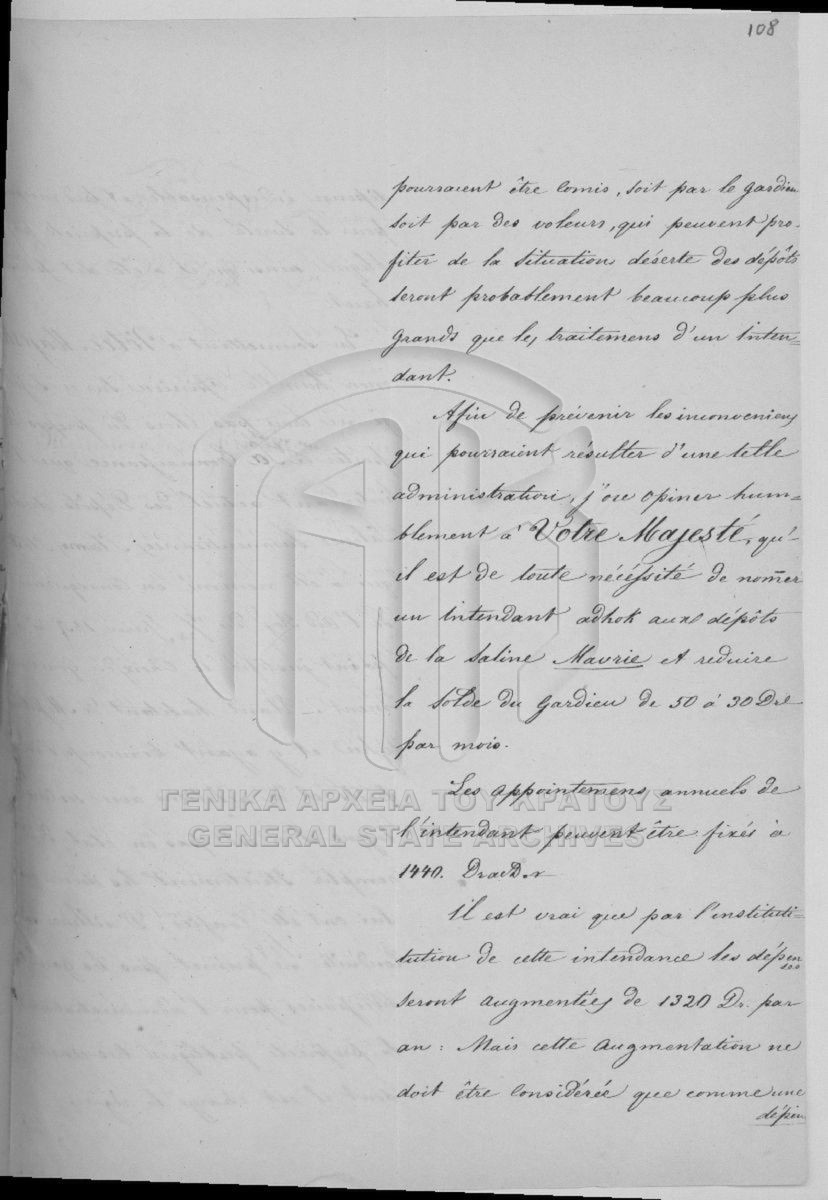 108
pourraient être comis, soit par le gardien
soit par des voleurs, qui peuvent pro-
fiter de la situation déserte des dépôts
seront probablement beaucoup plus
grands que les traitemens d'un Inten=
dant.
Afin de prévenir les inconveniens
qui pourraient résulter d'une telle
administration, j'ose opiner hum=
blement à Votre Majesté, qu'-
il est de toute nécéssité de nom̄er
un Intendant adhok aux dépôts
de la Saline Mavrie et reduire
la solde du Gardien de 50 à 30 Drs
par mois.
Les appointemens annuels de
l'intendant peuvent être fixés à
1440. Drach.
Il est vrai que par l'instituti-
tution de cette intendance les dépenses
seront augmentées de 1320 Dr. par
an: Mais cette augmentation ne
doit être considérée que comme une
dépen
ΓΕΝΙΚΑ ΑΡΧΕΙΑ ΤΟΥ ΚΡΑΤΟΥΣ
GENERAL STATE ARCHIVES